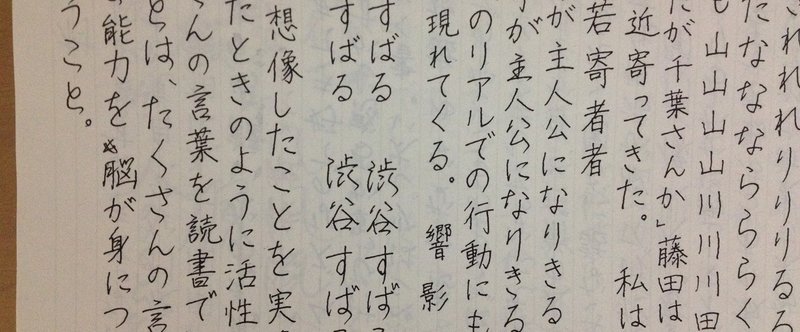 されれれりりりるる
たななならららく
も山山山山川川川田
たが千葉さんか」藤田は
近寄ってきた。　私は
若寄者者
が主人公になりきる
が主人公になりきる
のリアルでの行動にも
現れてくる。　響影
すばる　渋谷すばる
すばる　渋谷すばる
想像したことを実
たときのように活性
さんの言葉を読書で
とは、たくさんの言
能力を脳が身につ
うこと。